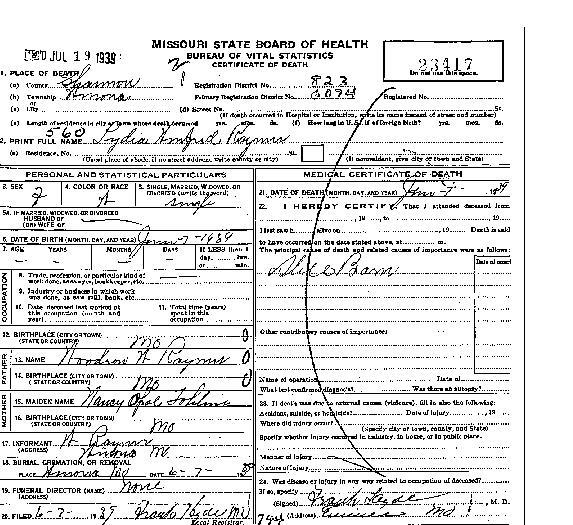 MISSOURI STATE BOARD OF HEALTH
BUREAU OF VITAL STATISTICS
CERTIFICATE OF DEATH
JUL 19 1939
23417
Do not use this space.
1. PLACE OF DEATH
(a) County Shannon
Registration District No. 823
(b) Township
Primary Registration District No. 6094
Registered No.
or
(c) City
(d) Street No. St.
(If death occurred in Hospital or Institution, write its name instead of street and number)
(e) Length of residence in city or town where death occurred yrs. mos. ds.
(f) How long in U.S., if of foreign birth? yrs. mos. ds.
560
2. PRINT FULL NAME Lydia Raymer
(a) Residence, No. St.
(Usual place of abode, if no street address, write county or city)
(If nonresident, give city or town and State)
PERSONAL AND STATISTICAL PARTICULARS
3. SEX 4. COLOR OR RACE 5. SINGLE, MARRIED, WIDOWED, OR
DIVORCED (write the word)
F W single
5A. IF MARRIED, WIDOWED, OR DIVORCED
HUSBAND OF
(OR) WIFE OF
6. DATE OF BIRTH (MONTH, DAY, AND YEAR) June-7-1939
7. AGE YEARS MONTHS DAYS If LESS than 1
day, hrs.
or min.
OCCUPATION
8. Trade, profession, or particular kind of
work done, sawyer, bookkeeper, etc.
9. Industry or business in which
work was done, as saw mill, bank, etc.
10. Date deceased last worked at
this occupation (month and
year)
11. Total time (years)
spent in this
occupation
12. BIRTHPLACE (CITY OR TOWN)
(STATE OR COUNTRY) Mo 0
FATHER
13. NAME Woodrow W Raymer
14. BIRTHPLACE (CITY OR TOWN)
(STATE OR COUNTRY) Mo 0
MOTHER
15. MAIDEN NAME Nancy Opal
16. BIRTHPLACE (CITY OR TOWN)
(STATE OR COUNTRY) Mo
17. INFORMANT W Raymer
(ADDRESS)
18. BURIAL, CREMATION, OR REMOVAL
PLACE Mo DATE 6-7- 39
19. FUNERAL DIRECTOR (NAME) None
(ADDRESS)
20. FILED 6-7- 1939 Frank Hyde MD
Local Registrar.
MEDICAL CERTIFICATE OF DEATH
21. DATE OF DEATH (MONTH, DAY, AND YEAR) June-7- 1939
22. I HEREBY CERTIFY, That I attended deceased from
, 19 , to , 19
I last saw h alive on , 19 Death is said
to have occurred on the date stated above, at m.
The principal cause of death and related causes of importance were as follows:
Date of onset
Still Born
Other contributory causes of importance:
Name of operation Date of
What test confirmed diagnosis? Was there an autopsy?
23. If death was due to external causes (violence), fill in also the following:
Accident, suicide, or homicide? Date of injury , 19
Where did injury occur?
(Specify city or town, county, and State)
Specify whether injury occurred in industry, in home, or in public place.
Manner of injury
Nature of injury
24. Was disease or injury in any way related to occupation of deceased?
If so, specify
(Signed) Frank Hyde, M. D.
(Address) Mo